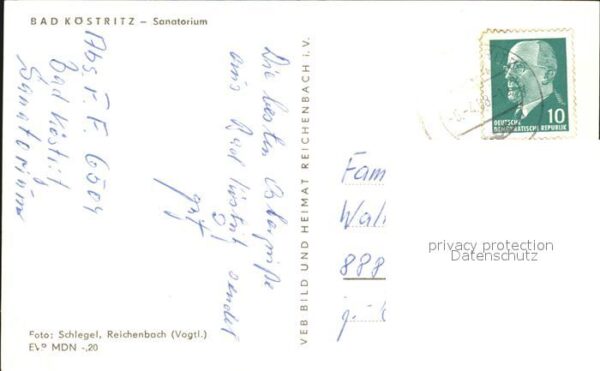 BAD KÖSTRITZ – Sanatorium
Abs. F. F 6504
Bad Köstritz
Sanatorium
Die besten Ostergrüße
aus Bad Köstritz sendet
VEB BILD UND HEIMAT REICHENBACH i.V.
10
DEUTSCHE
DEMOKRATISCHE REPUBLIK
Fam
888
privacy protection
Datenschutz
Foto: Schlegel, Reichenbach (Vogtl.)
EVP MDN -,20